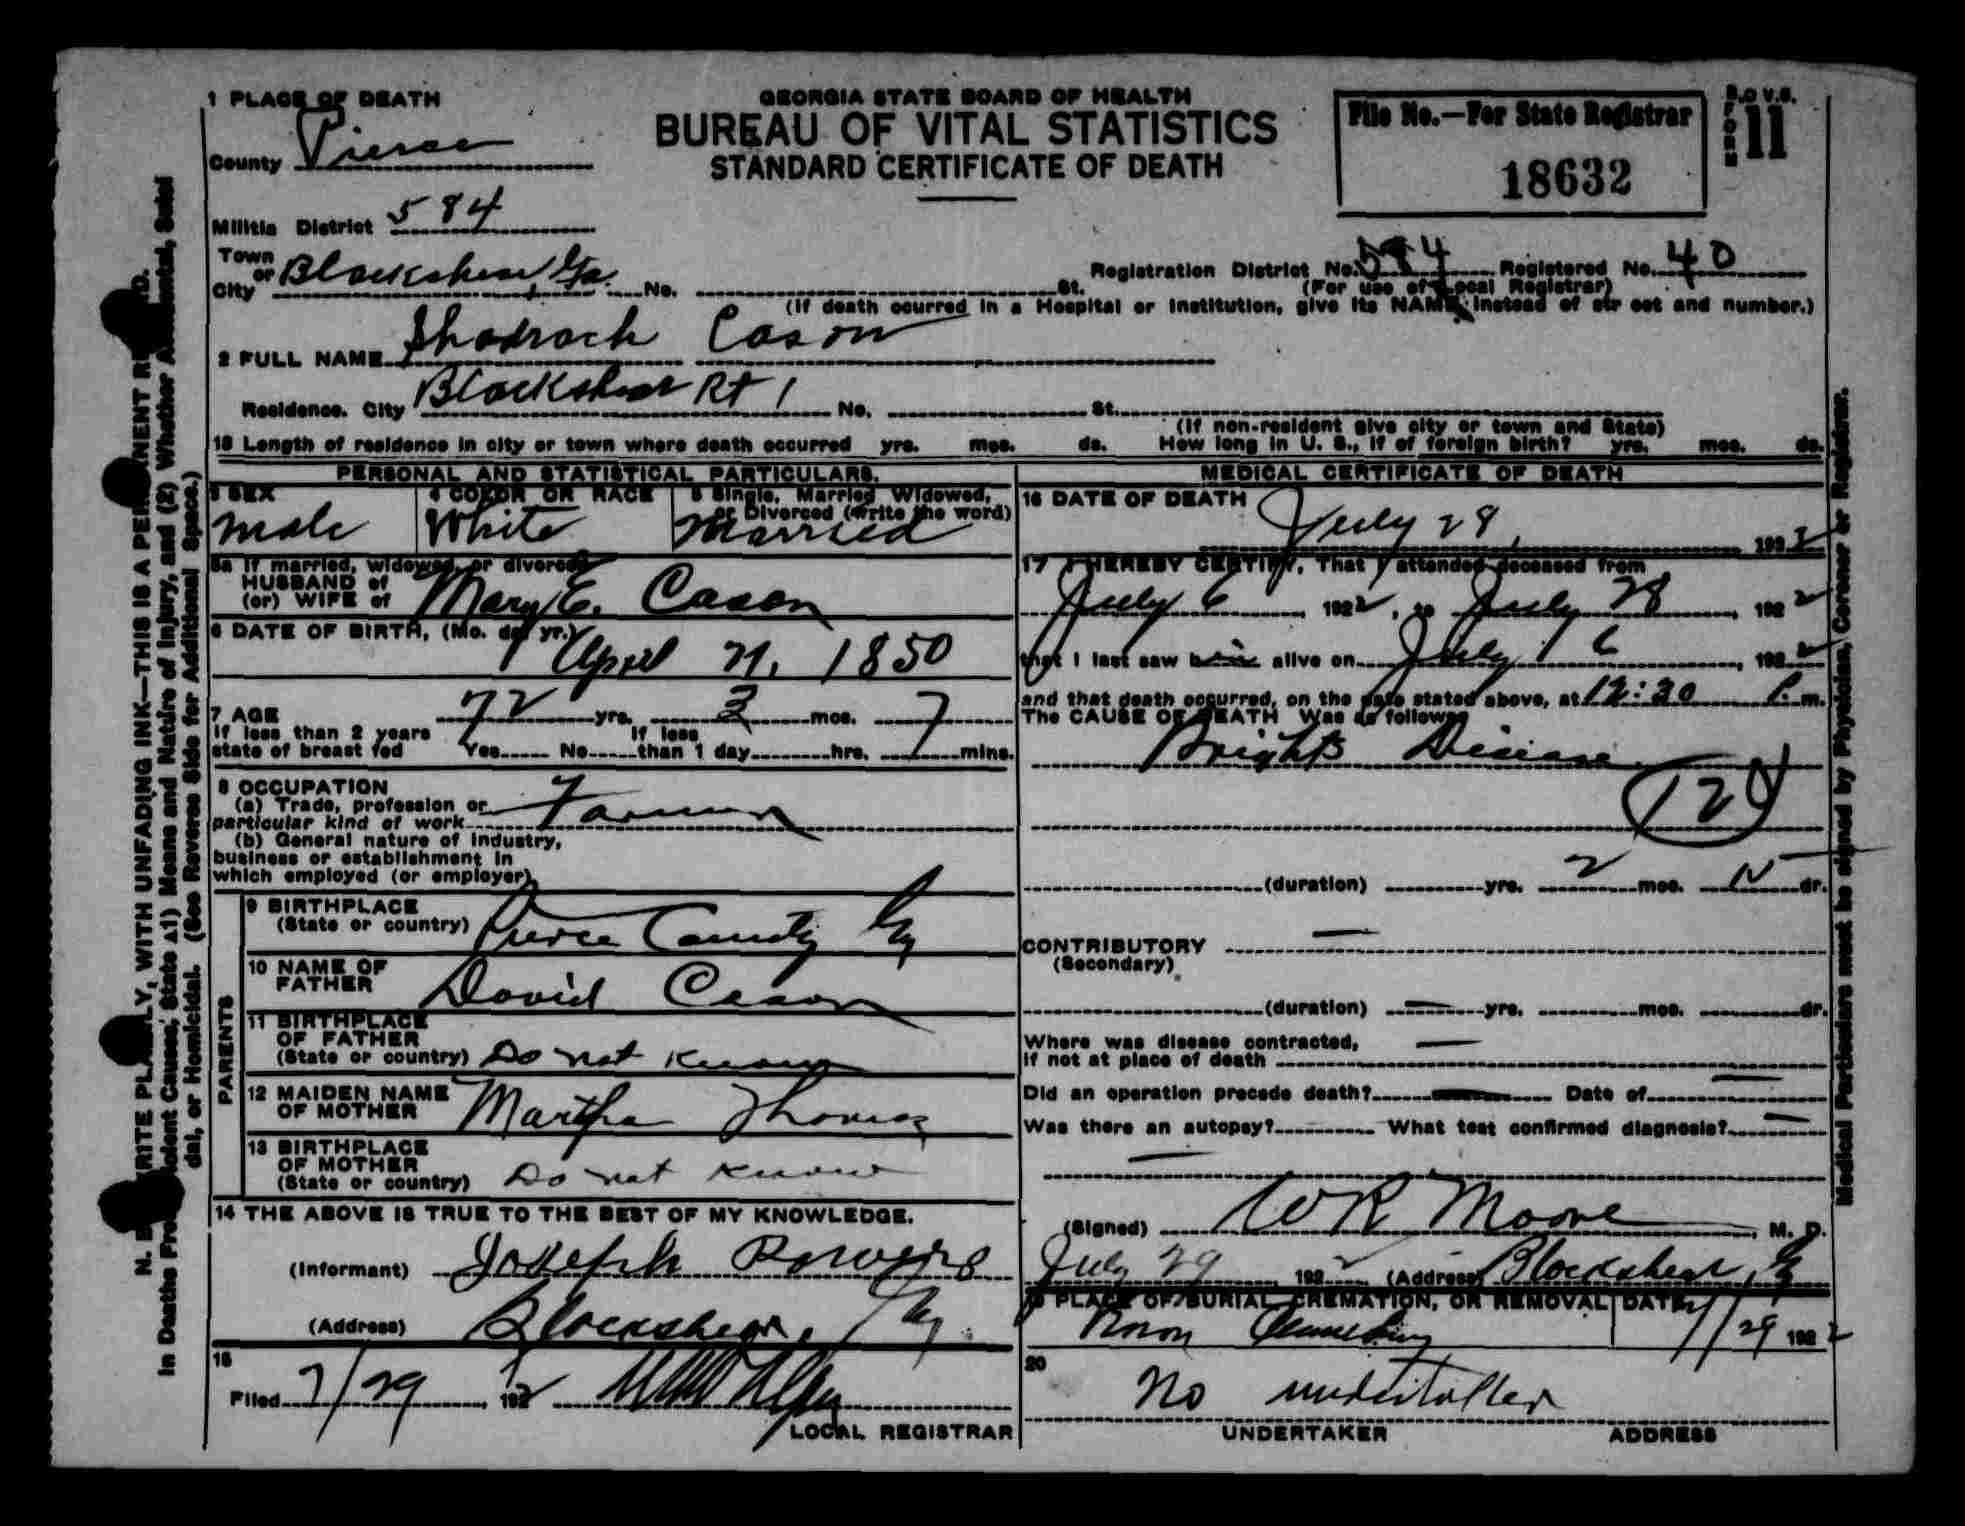 1 PLACE OF DEATH
GEORGIA STATE BOARD OF HEALTH
BUREAU OF VITAL STATISTICS
STANDARD CERTIFICATE OF DEATH
File No.—For State Registrar
18632
B.O.V.S.
FORM 11
County Pierce
Militia District 584
Town or City Blackshear, Ga. No. St.
Registration District No. 584 Registered No. 40
(For use of Local Registrar)
(If death ocurred in a Hospital or Institution, give its NAME instead of street and number.)
2 FULL NAME Shadrach Cason
Residence. City Blackshear Rt 1 No. St.
(If non-resident give city or town and State)
18 Length of residence in city or town where death occurred yrs. mos. ds. How long in U. S., if of foreign birth? yrs. mos. ds.
PERSONAL AND STATISTICAL PARTICULARS.
3 SEX
male
4 COLOR OR RACE
White
5 Single, Married Widowed,
or Divorced (write the word)
married
5a If married, widowed, or divorced
HUSBAND of
(or) WIFE of Mary E. Cason
6 DATE OF BIRTH, (Mo. da. yr.)
April 21, 1850
7 AGE 72 yrs. 3 mos. 7
If less than 2 years If less
state of breast fed Yes No than 1 day hrs. mins.
8 OCCUPATION
(a) Trade, profession or
particular kind of work Farmer
(b) General nature of industry,
business or establishment in
which employed (or employer)
PARENTS
9 BIRTHPLACE
(State or country) Pierce County Ga
10 NAME OF
FATHER David Cason
11 BIRTHPLACE
OF FATHER
(State or country) Do not know
12 MAIDEN NAME
OF MOTHER Martha Thomas
13 BIRTHPLACE
OF MOTHER
(State or country) Do not know
14 THE ABOVE IS TRUE TO THE BEST OF MY KNOWLEDGE.
(Informant) Joseph Bowers
(Address) Blackshear, Ga.
15
Filed 7/29, 1922
LOCAL REGISTRAR
MEDICAL CERTIFICATE OF DEATH
16 DATE OF DEATH
July 28, 1922
17 I HEREBY CERTIFY, That I attended deceased from
July 6, 1922, to July 28, 1922
that I last saw him alive on July 6, 1922
and that death occurred, on the date stated above, at 12:30 P.m.
The CAUSE OF DEATH Was as follows
Brights Disease
129
(duration) yrs. 2 mos. 15 dr.
CONTRIBUTORY —
(Secondary)
(duration) — yrs. mos. dr.
Where was disease contracted,
if not at place of death —
Did an operation precede death? — Date of —
Was there an autopsy? What test confirmed diagnosis? —
—
(Signed) W R Moore, M. D.
July 29 1922 (Address) Blackshear, Ga
19 PLACE OF BURIAL, CREMATION, OR REMOVAL DATE
Cemetery 7/29 1922
20
No undertaker
UNDERTAKER ADDRESS
N. B. WRITE PLAINLY, WITH UNFADING INK—THIS IS A PERMANENT RECORD.
In Deaths From Violent Causes, State (1) Means and Nature of Injury, and (2) Whether Accidental, Suicidal, or Homicidal. (See Reverse Side for Additional Space.)
Medical Particulars must be signed by Physician, Coroner or Registrar.